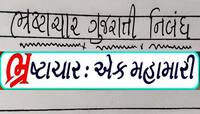 ભ્રષ્ટાચાર ગુજરાતી નિબંધ
ભ્રષ્ટાચાર : એક મહામારી